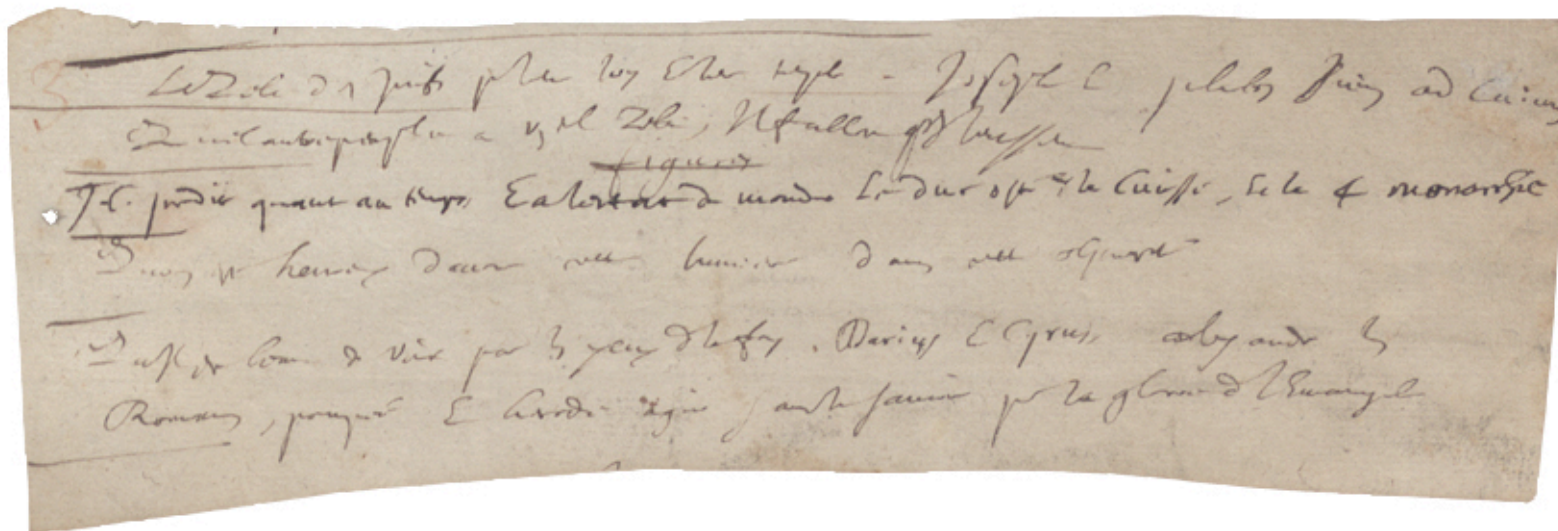 3 Le Zele des juifs pour leur loy & leur temple - Josephe & philon Juif ad Caium
Quel autre peuple a un tel Zele, Il falloit qu'ils l'eussent
figures
J.-C. predit quant au temps & a lestat du monde Le duc osté de la Cuisse, & la 4 monarchie
Quon est heureux davoir cette lumiere dans cette obscurité
Quil est beau de Voir par les yeux de la foy, Darius & Cyrus, alexandre les
Romains, pompée & herode agir sans le savoir pour la gloire de l'Evangile